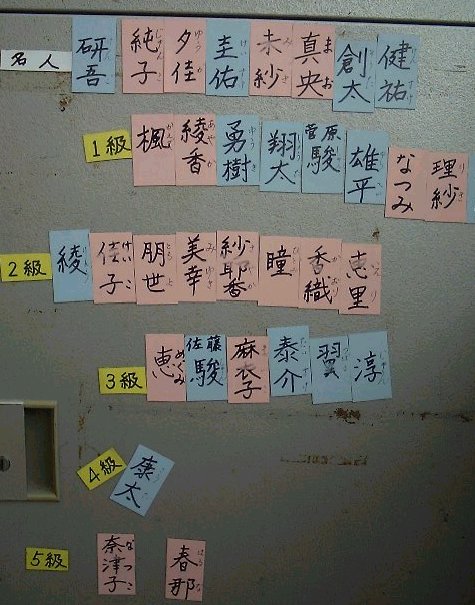 名人 研吾 純子 夕佳 圭佑 未紗 真央 創太 健祐
1級 楓 綾香 勇樹 翔太 菅原駿 雄平 なつみ 理紗
2級 綾 佳子 朋世 美幸 紗耶香 瞳 香織 恵里
3級 恵 佐藤駿 麻衣子 泰介 翼 淳
4級 康太
5級 奈津子 春那